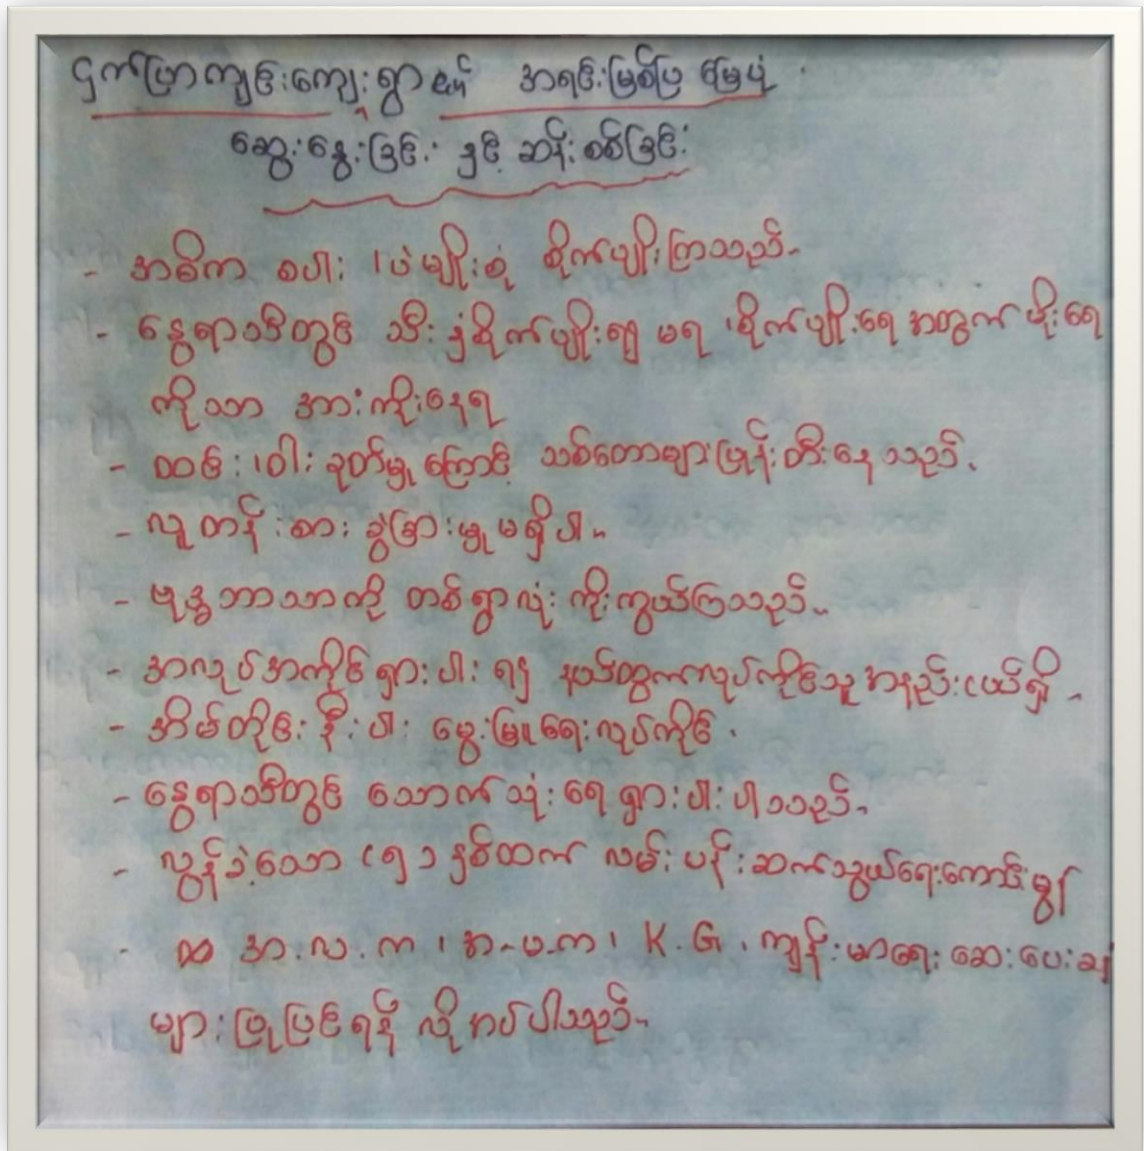 ငှက်ပြာကျင်းကျေးရွာ၏ အရင်းမြစ်ပြ မြေပုံ
ဆွေးနွေးခြင်း နှင့် ဆန်းစစ်ခြင်း
- အဓိက စပါး ၊ ပဲမျိုးစုံ စိုက်ပျိုးကြသည်။
- နွေရာသီတွင် သီးနှံစိုက်ပျိုး၍ မရ ၊ စိုက်ပျိုးရေအတွက် မိုးရေ
ကိုသာ အားကိုးနေရ
- ထင်း၊ ဝါး ခုတ်မှုကြောင့် သစ်တောများပြုန်းတီးနေသည်။
- လူတန်းစား ခွဲခြားမှုမရှိပါ။
- ဗုဒ္ဓဘာသာကို တစ်ရွာလုံး ကိုးကွယ်ကြသည်။
- အလုပ်အကိုင်ရှားပါး၍ နယ်ထွက်လုပ်ကိုင်သူ အနည်းငယ်ရှိ
- အိမ်တိုင်းနီးပါး မွေးမြူရေးလုပ်ကိုင်
- နွေရာသီတွင် သောက်သုံးရေ ရှားပါးပါသည်။
- လွန်ခဲ့သော (၅) နှစ်ထက် လမ်းပန်းဆက်သွယ်ရေးကောင်းမွန်
- အ.လ.က ၊ အ.မ.က ၊ K.G ၊ ကျန်းမာရေး ဆေးပေးခန်း
များ ပြုပြင်ရန် လိုအပ်ပါသည်။